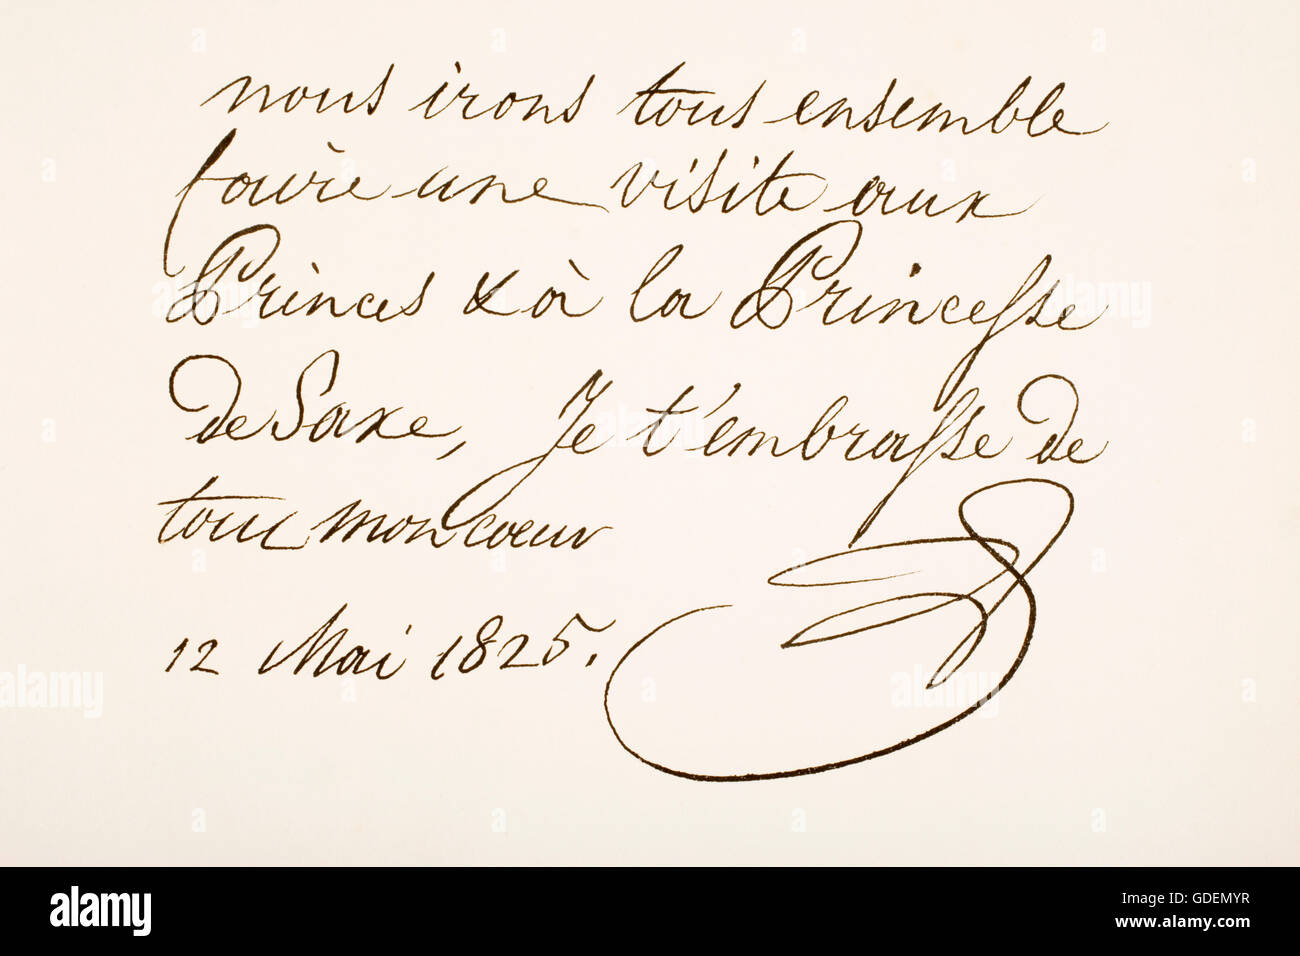 nous irons tous ensemble
faire une visite aux
Princes & à la Princesse
de Saxe, Je t'embrasse de
tout mon coeur
12 Mai 1825.
alamy
Image ID: GDEMYR
www.alamy.com